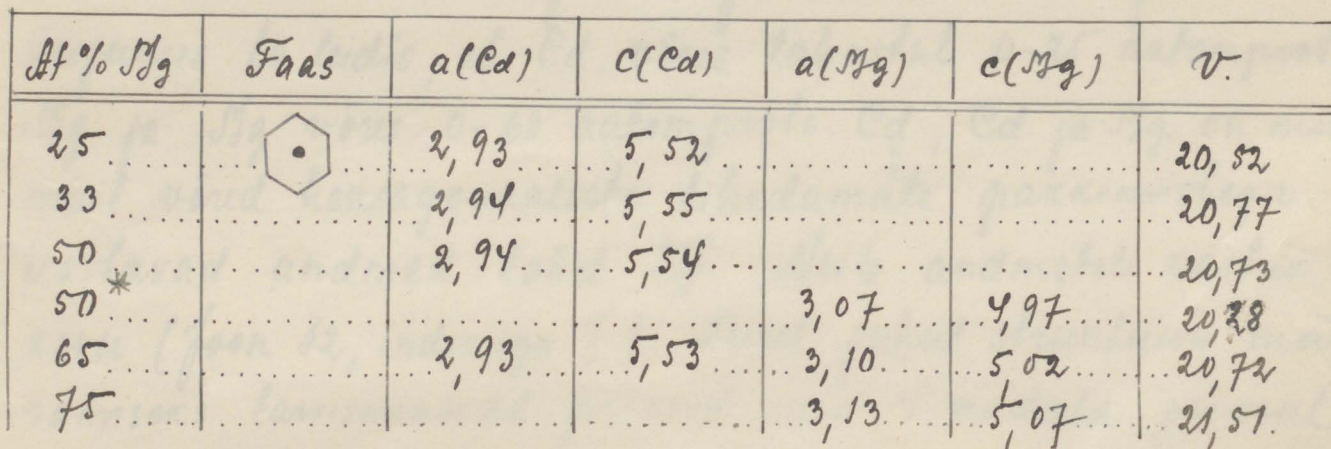 At % Mg Faas a(Cd) c(Cd) a(Mg) c(Mg) v.
25 2,93 5,52 20,52
33 2,94 5,55 20,77
50 2,94 5,54 20,73
50* 3,07 4,97 20,28
65 2,93 5,53 3,10 5,02 20,72
75 3,13 5,07 21,51.